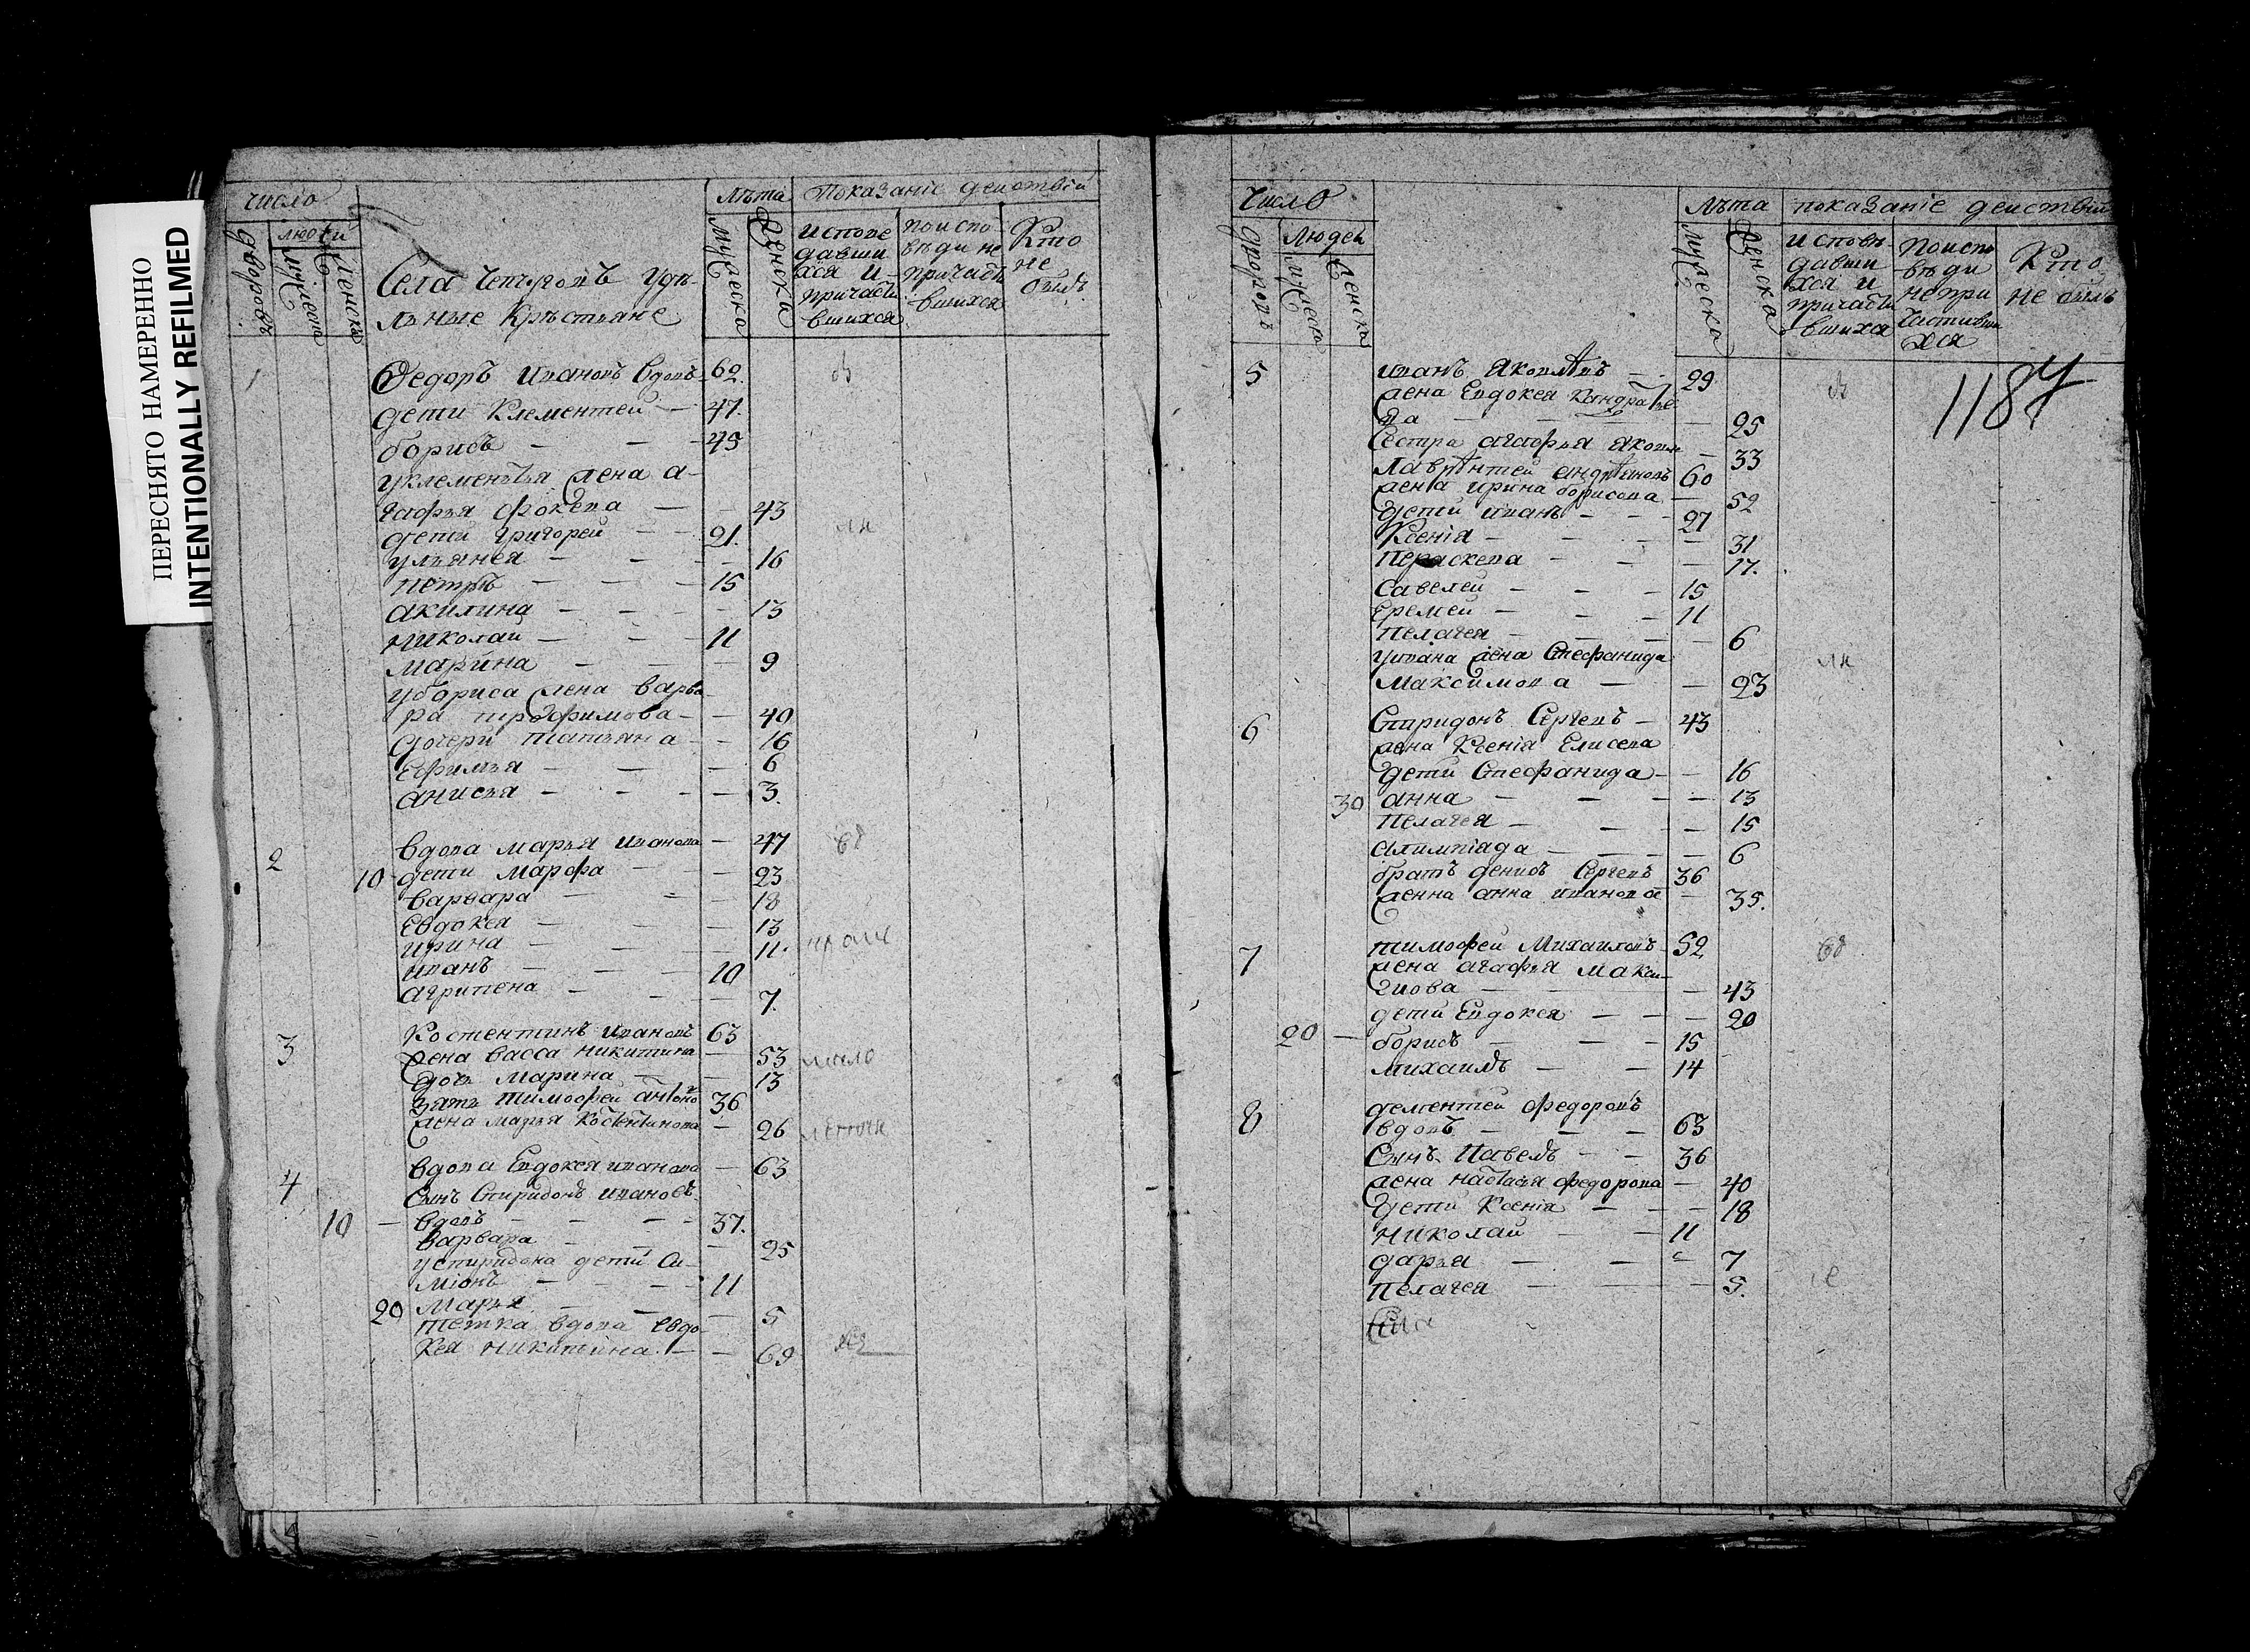 ПЕРЕСНЯТО НАМЕРЕННО
INTENTIONALLY REFILMED
число
дворовъ
людей
мужеска
женска
Села Чепуговъ Удѣ-
льные Крѣстьяне
лѣта
мужеска
женска
Показаніе действій
испове
давши
хся и
причасти
вшихся
по испо-
вѣди не
причасти
вшихся
Кто
не
былъ
1 Федоръ Ивановъ вдовъ 62.
дети Клементей — 47.
борисъ — — — 45
уклементья жена а-
гафья фокева — — 43
дети григорей — — 21.
ульянея — — — 16
петръ — — — 15
акилина — — — 13
николай — — — 11
марина — — — 9
убориса жена варва
ра трофимова — — 40
дочери татьяна — — 16
Ефимья — — — 6
анисья — — — 3.
2 вдова марья иванова — 47
10 дети марфа — — 23
варвара — — — 18
Евдокея — — — 13
ирина — — — 11.
иванъ — — — 10
агрипена — — — 7.
3 Костентинъ ивановъ 63
жена васса никитина — 53
дочь марина — — 13
зять тимофей антоно 36
жена марья Костентинова — 26
4 вдова Евдокея иванова — 63
сынъ Спиридонъ ивановъ
10 — вдовъ — — — 37.
варвара — — — 25
успиридона дети Си-
міонъ — — — 11
20 марья — — — 5
тетка вдова евдо
кея никитина — — 69
Число
дворовъ
людей
мужеска
женска
лѣта
мужеска
женска
показаніе действій
исповѣ-
давши
хся и
причасти
вшихся
поиспо
вѣди
непри
частивши
хся
Кто
не былъ
1187
5 иванъ Яковлевъ — 29
жена Евдокея Кондратье
ва — — — 25
Сестра агафья яковле — 33
лаврентей андреяновъ 60
жена ирина борисова — 52
дети иванъ — — — 27
Ксенія — — — 31
Пераскева — — — 17.
Савелей — — — 15
Еремей — — — 11
Пелагея — — — 6
уивана жена Стефанида
Максимова — — 23
6 Спиридонъ Сергевъ — 43
жена Ксенія Елисева
дети Стефанида — — 16
30 анна — — — 13
Пелагея — — — 15
Алимпіада — — — 6
братъ денисъ Сергевъ 36
женна анна иванова — 35.
7 тимофей Михайловъ 52
жена агафья макси-
мова — — — 43
дети Евдокея — — — 20
20 — борисъ — — — 15
михаилъ — — 14
8 дементей федоровъ
вдовъ — — — 63
Сынъ Павелъ — — 36
жена настасья федорова — 40
дети Ксенія — — — 18
николай — — 11
дарья — — — 7
Пелагея — — — 5.